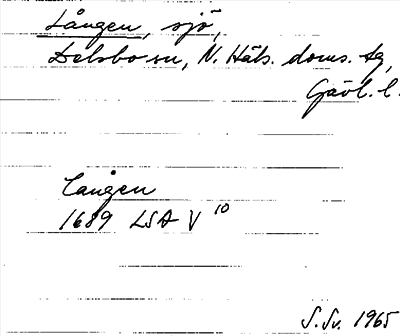 Lången, sjö,
Delsbo sn, N. Häls. doms. tg,
Gävl. l.
Lången
1689 LSA V 10
S. Sv. 1965